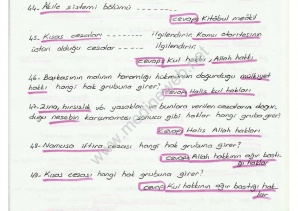 44- Akile sistemi bölümü ----------
cevap: Kitâbul meâkil
45- Kısas cezaları ---------- ilgilendirir. Kamu otoritesinin
üstün olduğu cezalar ---------- ilgilendirir.
cevap: Kul hakkı, Allah hakkı
46- Başkasının malının haramlığı hükmünün doğurduğu mülkiyet
hakkı hangi hak grubuna girer?
cevap: Halis kul hakları
47- Zina, hırsızlık vb. yasaklar ve bunlara verilen cezaların doğur-
duğu nesebin karışmaması sonucu gibi haklar hangi gruba girer?
cevap: Halis Allah hakları
48- Namusa iftira cezası hangi hak grubuna girer?
cevap: Allah hakkının ağır bastı-
ğı haklar
49- Kısas cezası hangi hak grubuna girer?
cevap: Kul hakkının ağır bastığı hak-
lar